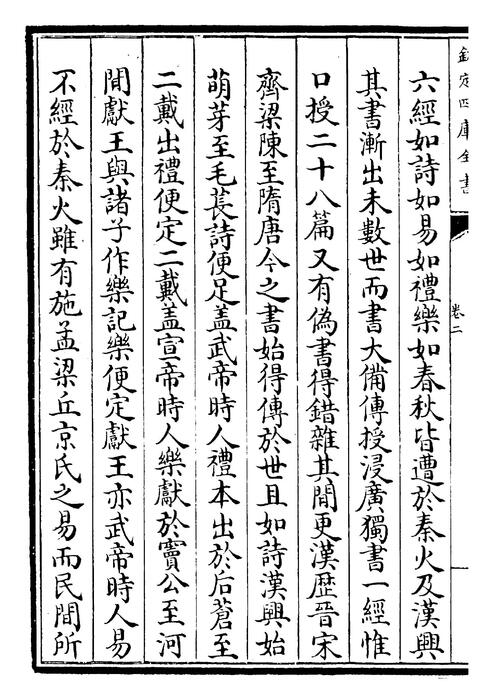 欽定四庫全書
卷二
六經如詩如易如禮樂如春秋皆遭於秦火及漢興
其書漸出未數世而書大備傳授浸廣獨書一經惟
口授二十八篇又有偽書得錯雜其間更漢歴晉宋
齊梁陳至隋唐今之書始得傳於世且如詩漢興始
萌芽至毛萇詩便足盖武帝時人禮本出於后蒼至
二戴出禮便定二戴盖宣帝時人樂獻於竇公至河
間獻王與諸子作樂記樂便定獻王亦武帝時人易
不經於秦火雖有施孟梁丘京氏之易而民間所